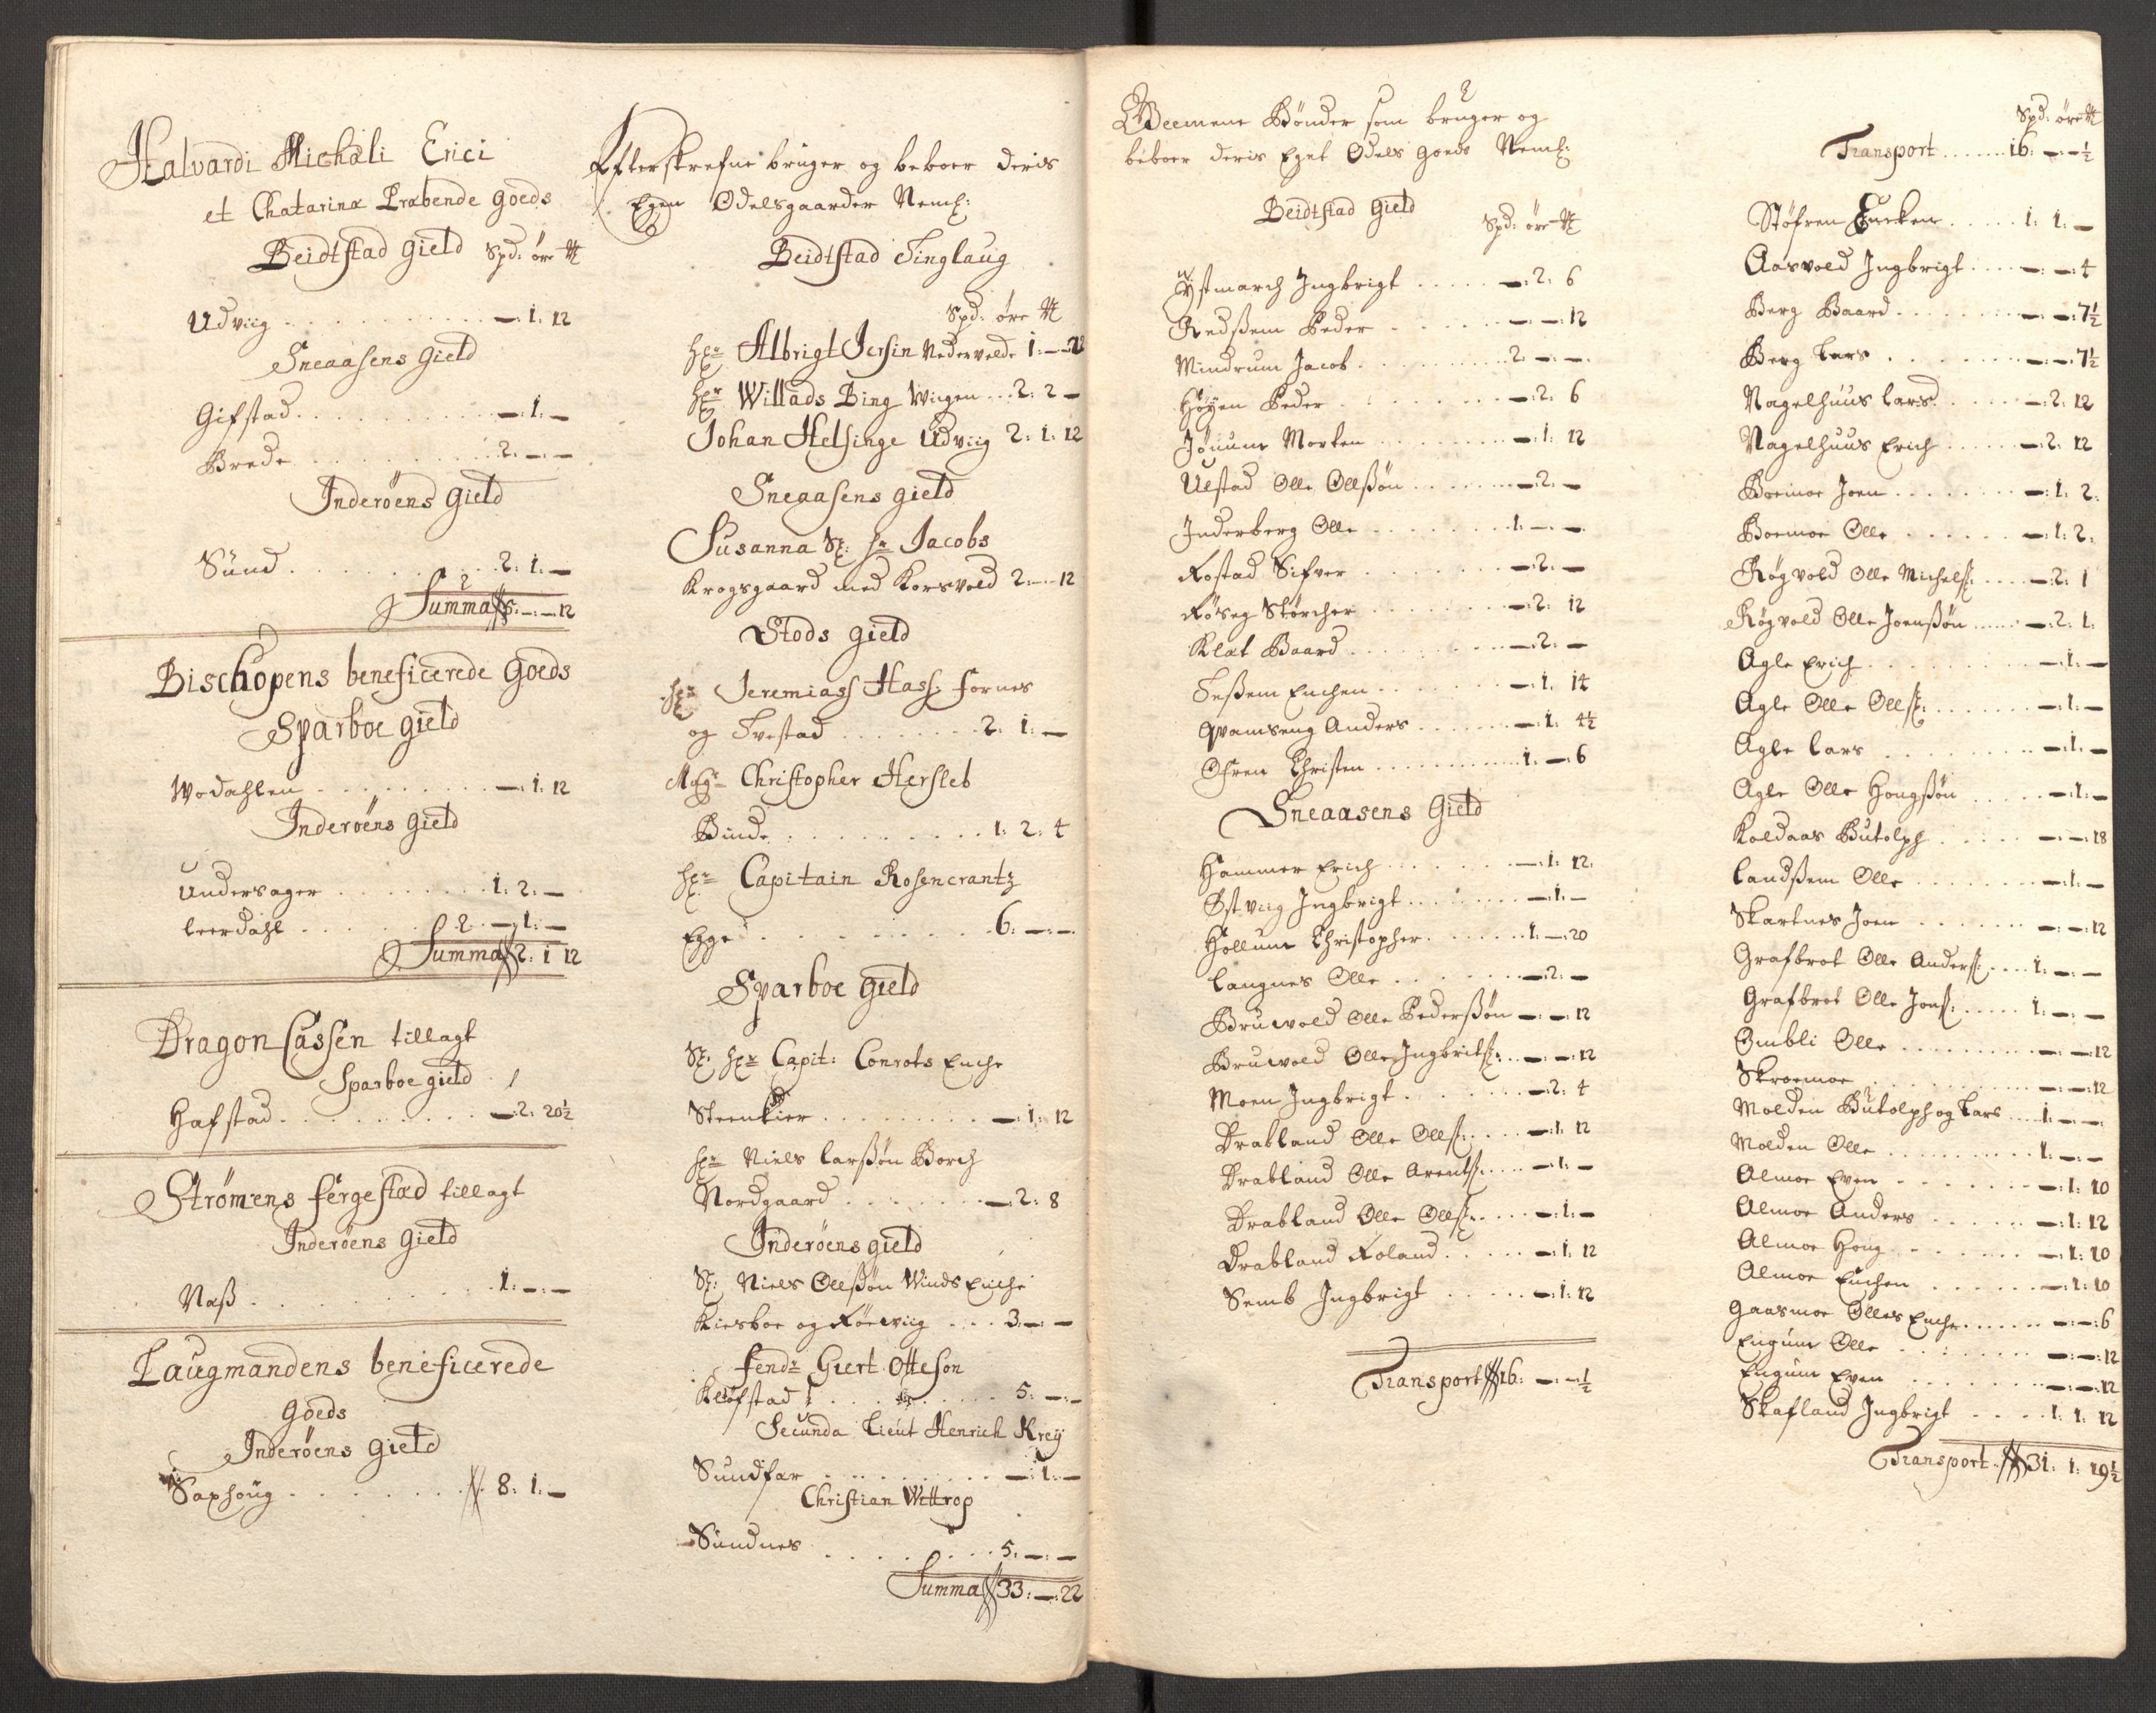 Halvardi Michali Erici
et Chatarinæ Præbende Goeds
Beidtstad Gield Spd: öre ₰
Udviig . . . —: 1: 12
Sneaasens Gield
Gifstad . . . —: 1: —
Brede . . . 2: —: —
Inderöens Gield
Sund . . . 2: 1: —
Summa 5: —: 12
Bischopens beneficerede Goeds
Sparboe Gield
Wodahlen . . . —: 1: 12
Inderöens Gield
Undersager . . . 1: 2: —
Leerdahl . . . —: 1: —
Summa 2: 1 12
Dragon Cassen tillagt
Sparboe gield
Hafstad . . . —: 2: 20½
Strömens færgestæd tillagt
Inderöens Gield
Naß . . . 1: —: —
Laugmandens beneficerede
Goeds
Inderöens Gield
Saxhoug . . . 8: 1: —
Efterskrefne bruger og beboer deris
Egen Odelsgaarder Neml:
Beidtstad Tinglaug
Spd: öre ₰
Hr Albrigt Jersin Nedervelde 1: —: 22
Hr Willads Bing Wiigen . . . 2: 2 —
Johan Helsinge Udviig 2: 1: 12
Sneaasens gield
Susanna Sl: Hr Jacobs
Krogsgaard med Korsvold 2: —: 12
Stods gield
Hr Jeremiass Hass: Fornes
og Tvestad . . . 2: 1: —
Magr Christopher Hersleb
Binde . . . 1: 2: 4
Hr Capitain Rosencrantz
Egge . . . 6: —: —
Sparboe Gield
Sl: Hr Capit: Conrots Enche
Steenkier . . . —: 1: 12
Hr Niels Larßøn Borch
Nordgaard . . . —: 2: 8
Inderöens gield
Sl: Niels Ollßøn Winds Enche
Kirkboe og Röeviig . . . 3: —: —
Fendr Giert Otteson
Kløfstad . . . 5: —: —
Secunda Lieut Henrich Kreÿ
Sundfar . . . —: 1: —
Christian Wittrop
Sundnes . . . 5: —: —
Summa 33: —: 22
Gemene Bønder som bruger og
beboer deris Eget Odels goeds Neml:
Beidtstad Gield
Spd: öre ₰
Østmarch Ingbrigt . . . —: 2: 6
Redßem Peder . . . —: —: 12
Mindrum Jacob . . . 2: —: —
Høyen Peder . . . —: 2: 6
Jønum Morten . . . —: 1: 12
Ulstad Olle Ollßøn . . . —: 2: —
Inderberg Olle . . . 1: —: —
Rostad Sifver . . . —: 2: —
Røseg Størcher . . . —: 2: 12
Klæt Baard . . . —: 2: —
Teßem Enchen . . . —: 1: 14
Qvamseng Anders . . . —: 1: 4½
Ofren Christen . . . 1: —: 6
Sneaasens Gield
Hammer Erich . . . —: 1: 12:
Østviig Ingbrigt . . . —: 1: —
Hollum Christopher . . . 1: —: 20
Langnes Olle . . . —: 2: —
Bruvold Olle Pederßøn —: —: 12
Bruvold Olle Ingbritß: . . —: —: 12
Moen Ingbrigt . . . —: 2: 4
Drabland Olle Ollß: . . . —: 1: 12
Drabland Olle Arentß: . . . —: 1: —
Drabland Olle Ollß: . . . —: 1: —
Drabland Roland . . . —: 1: 12
Semb Ingbrigt . . . —: 1: 12
Transport 16: —: —½
Spd: öre ₰
Transport . . . 16: —: —½
Støfren Encken . . . 1: 1: —
Aasvold Ingbrigt . . . —: —: 4
Berg Baard . . . —: —: 7½
Berg Lars . . . —: —: 7½
Nagelhuus Lars . . . —: 2: 12
Nagelhuus Erich . . . —: 2: 12
Boemoe Joen . . . —: 1: 2:
Boemoe Olle . . . —: 1: 2:
Røgvold Olle Michelß: . . . —: 2: 1
Røgvold Olle Joenßøn . . . —: 2: 1:
Agle Erich . . . —: 1: —
Agle Olle Ollß: . . . —: 1: —
Agle Lars . . . —: 1: —
Agle Olle Hongßøn . . . —: 1: —
Koldaas Butolph . . . —: —: 18
Landßem Olle . . . —: 1: —
Skartnes Joen . . . —: —: 12
Grafbrot Olle Anderß: . . . 1: —: —
Grafbrot Olle Jonß: . . . 1: —: —
Ombli Olle . . . —: —: 12
Skroemoe . . . —: —: 12
Molden Butolph og Lars . . . 1: —: —
Molden Olle . . . 1: —: —
Almoe Even . . . —: 1: 10
Almoe Anders . . . —: 1: 12
Almoe Hong . . . —: 1: 10
Almoe Enchen . . . —: 1: 10
Gaasmoe Olles Enche . . . —: —: 6
Engum Olle . . . —: —: 12
Engum Even . . . —: —: 12
Skafland Ingbrigt . . . 1: 1: 12
Transport 31: 1: 19½